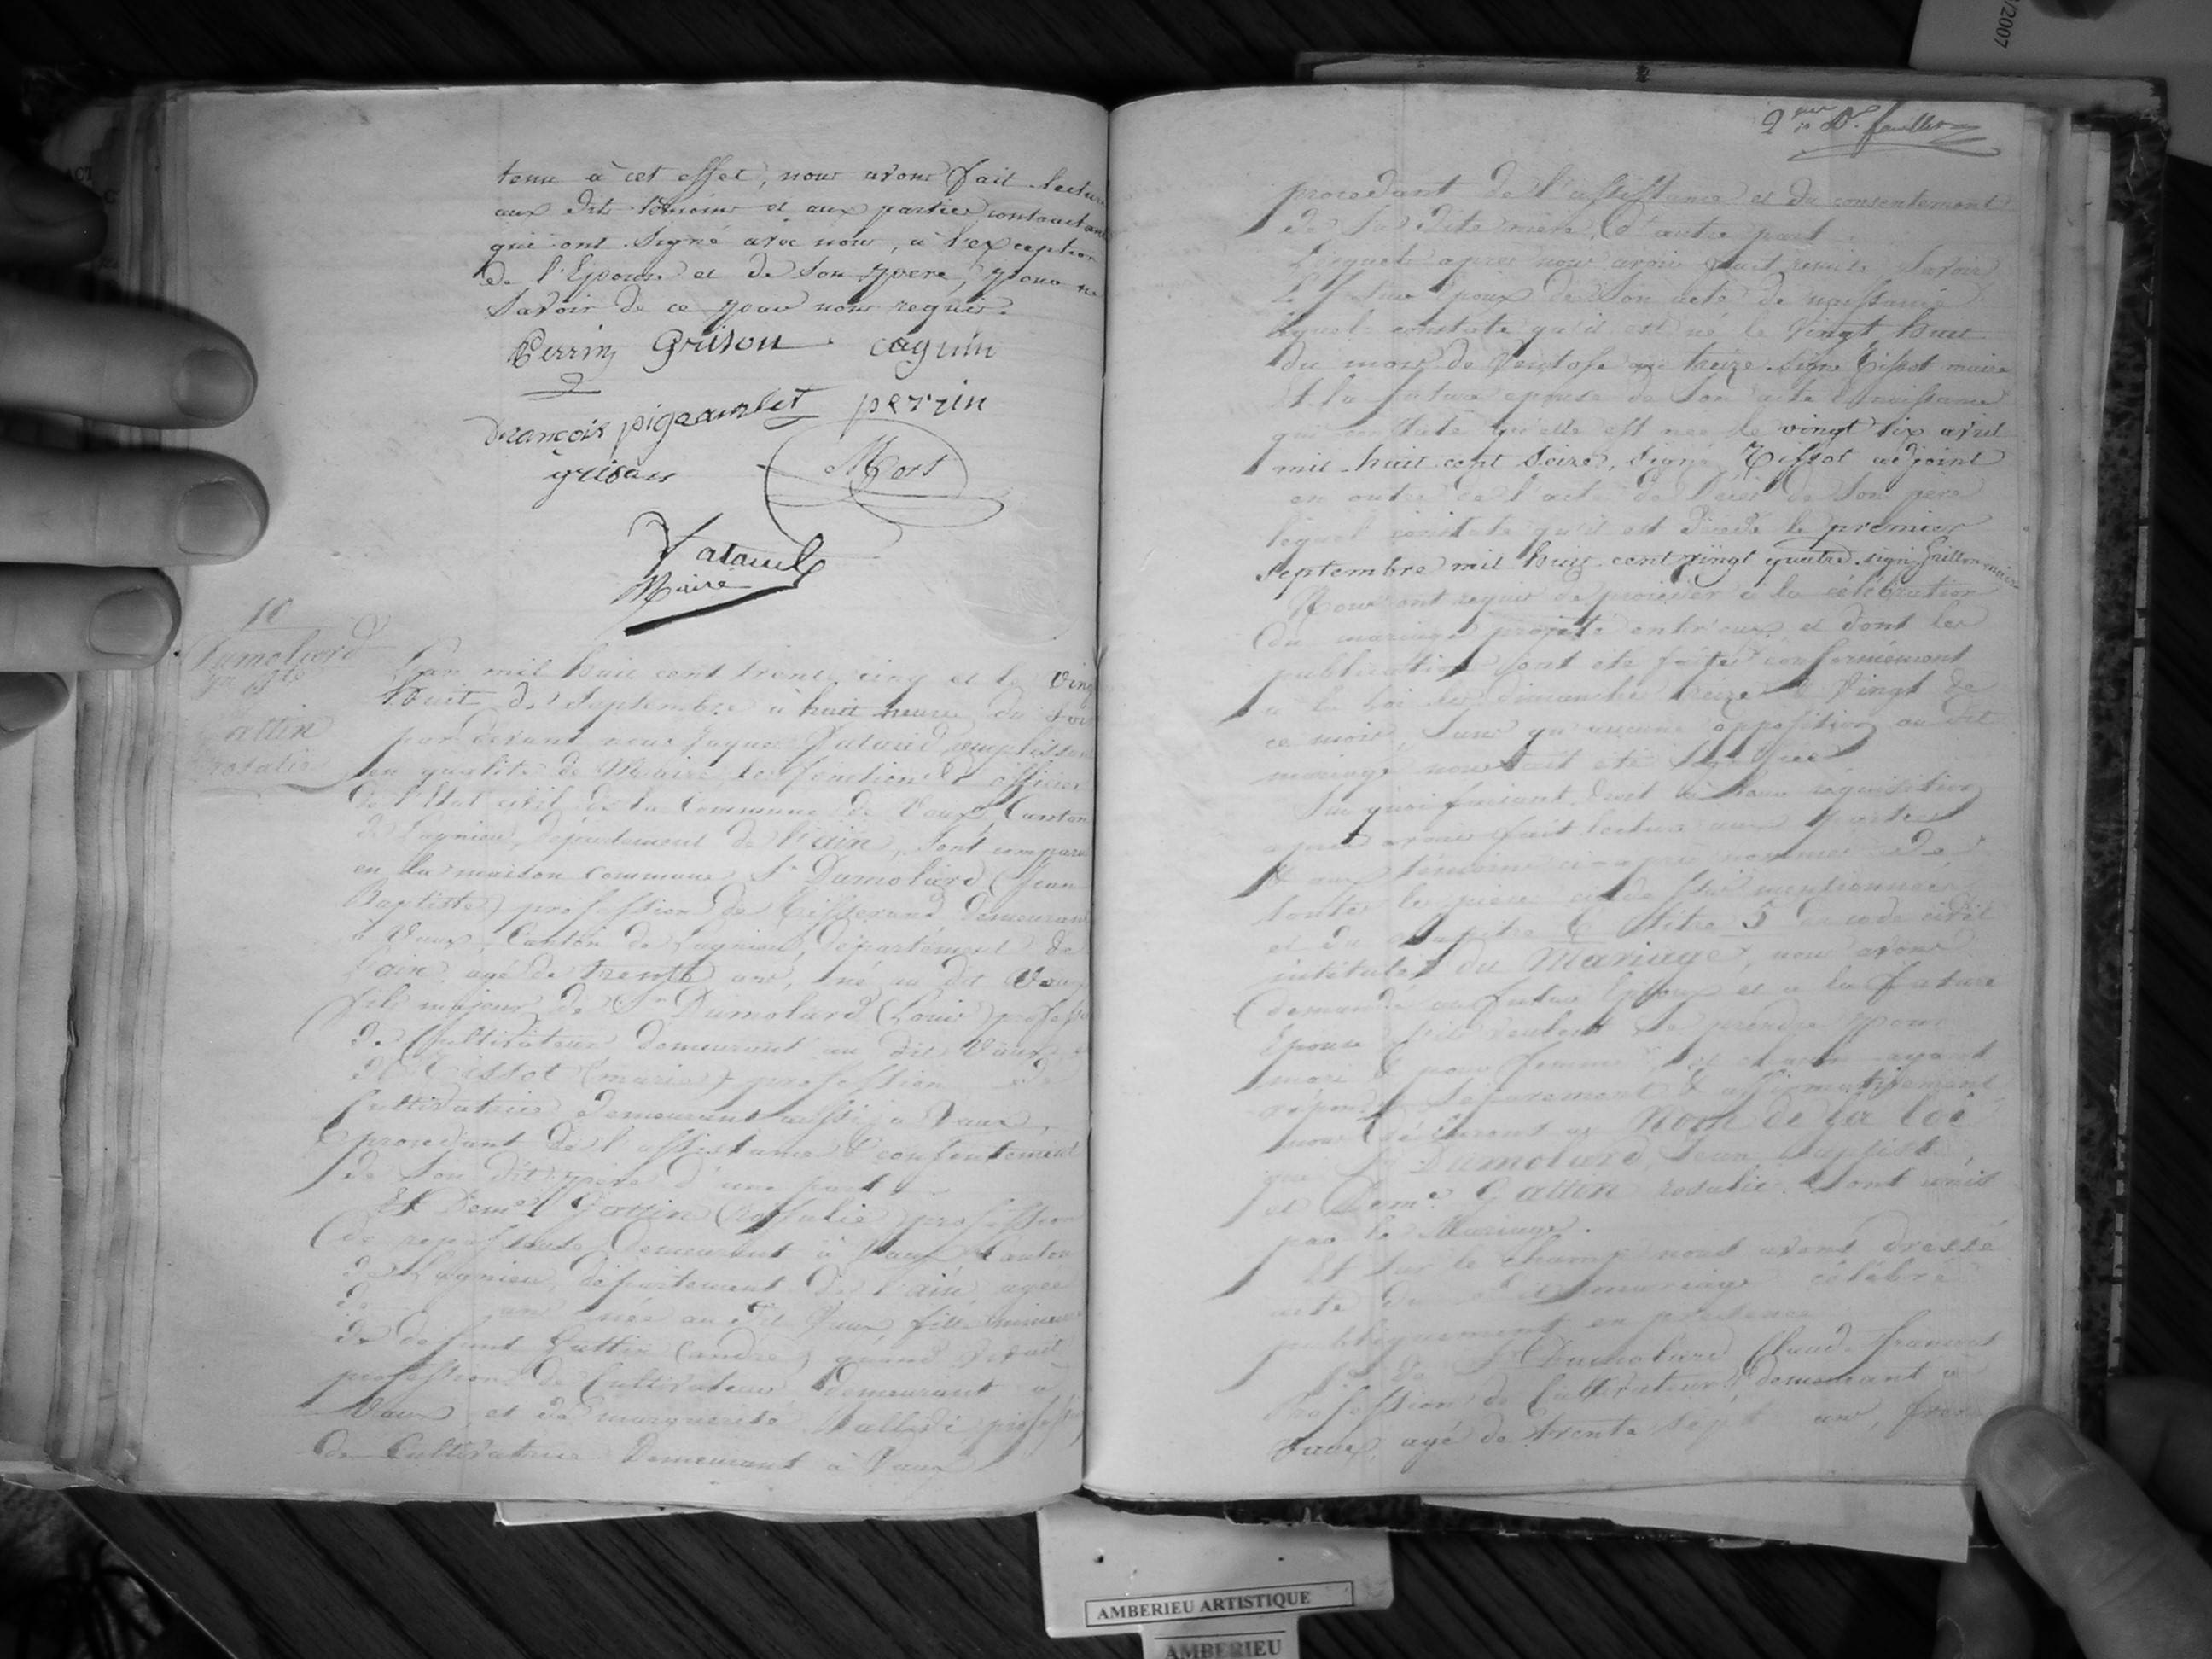 tenu à cet effet, nous avons fait lecture
aux dits témoins et aux parties contractant
qui ont signé avec nous, à l'exception
de l'Epouse et de son père, pour ne
savoir de ce par nous requis.
Perrin Grison Coquin
François pigeaurlet perrin
grison Mors
Vataud
Maire
10
Dumolard
Jn Bte
attin
rosalie
L'an mil huit cent trente cinq et le Ving
huit de Septembre à huit heures du soir
par devant nous Vataud remplissan
en qualité de Maire les fonctions d'officier
de l'Etat civil de la Commune de Vaux, Canton
de Lagnieu, département de l'ain, sont comparu
en la maison commune Sr Dumolard (Jean
Baptiste) profession de Tisserand demeurant
à Vaux, Canton de Lagnieu, département de
l'ain, agé de trente ans, né au dit Vaux
fils majeur de Sr Dumolard (Louis) profess
de Cultivateur demeurant au dit Vaux
et Tissot (marie) profession de
Cultivatrice demeurant aussi à Vaux,
procedant de l'assistance & consentement
de son dit père d'une part
Et Demlle (rosalie) profession
de demeurant à Vaux Canton
de Lagnieu, département de l'ain agée
de ans née au dit Vaux, fille mineure
de défunt Guttin (andré) quand vivait
profession de Cultivateur demeurant à
Vaux, et de marguerite profess
de Cultivatrice Demeurant à Vaux
2me Dr. feuillet
procedant de l'assistance et du consentement
de sa dite mère, d'autre part.
Lesquels apres nous avoir remis, savoir
Le futur Epoux de Son acte de naissance
lequel constate qu'il est né le Vingt huit
du mois de Ventose an treize signé Tissot maire
Et la future epouse de Son acte de naissance
qui constate qu'elle est née le vingt six avril
mil huit cent seize, signé Tissot adjoint
en outre de l'acte de Décès de Son père
lequel constate qu'il est décédé le premier
septembre mil huit cent vingt quatre signé Grillon maire
Nous ont requis de procéder à la célébration
du mariage projeté entr'eux et dont les
publications ont été faites conformément
à la loi les dimanches treize & Vingt de
ce mois, Sans qu'aucune opposition au dit
mariage nous ait été signifiée
Sur quoi faisant droit à leur réquisition
après avoir fait lecture aux parties
& aux témoins ci-après nommés de
toutes les pièces ci-dessus mentionnées
et du chapitre 6 titre 5 du code civil
intitulé du Mariage, nous avons
demandé au futur Epoux et à la future
Epouse s'ils veulent se prendre pour
mari & pour femme, et chacun ayant
répondu séparément & affirmativement
nous déclarons au Nom de la loi
que Sr Dumolard Jean Baptiste,
et Deme Gattin rosalie Sont unis
par le Mariage.
Et sur le champ nous avons dressé
acte du dit mariage célébré
publiquement en présence
1° De Sr Dumolard Claude françois
Profession de Cultivateur, demeurant à
Vaux, agé de trente sept ans, frère
/2007
AMBERIEU ARTISTIQUE
AMBERIEU